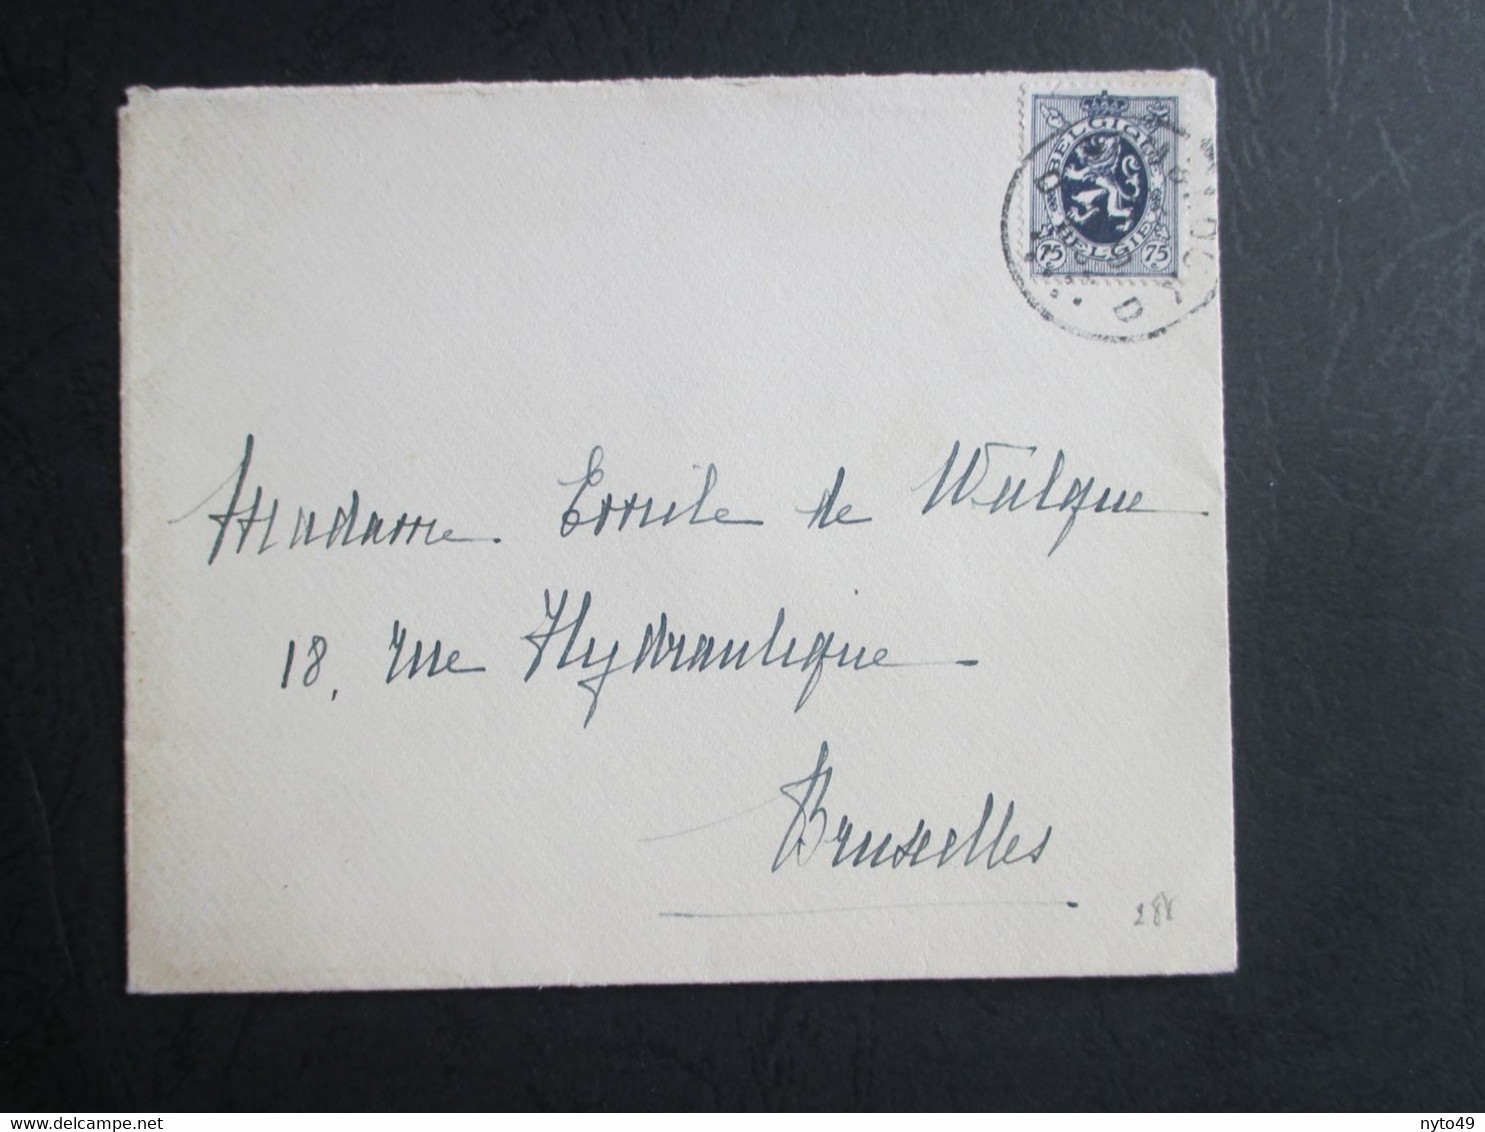 BELGIQUE
BELGIE
75 75
D D
Madame Emile de Wulque
18, rue Hydraulique
Bruxelles
288
nyto49
delcampe.net